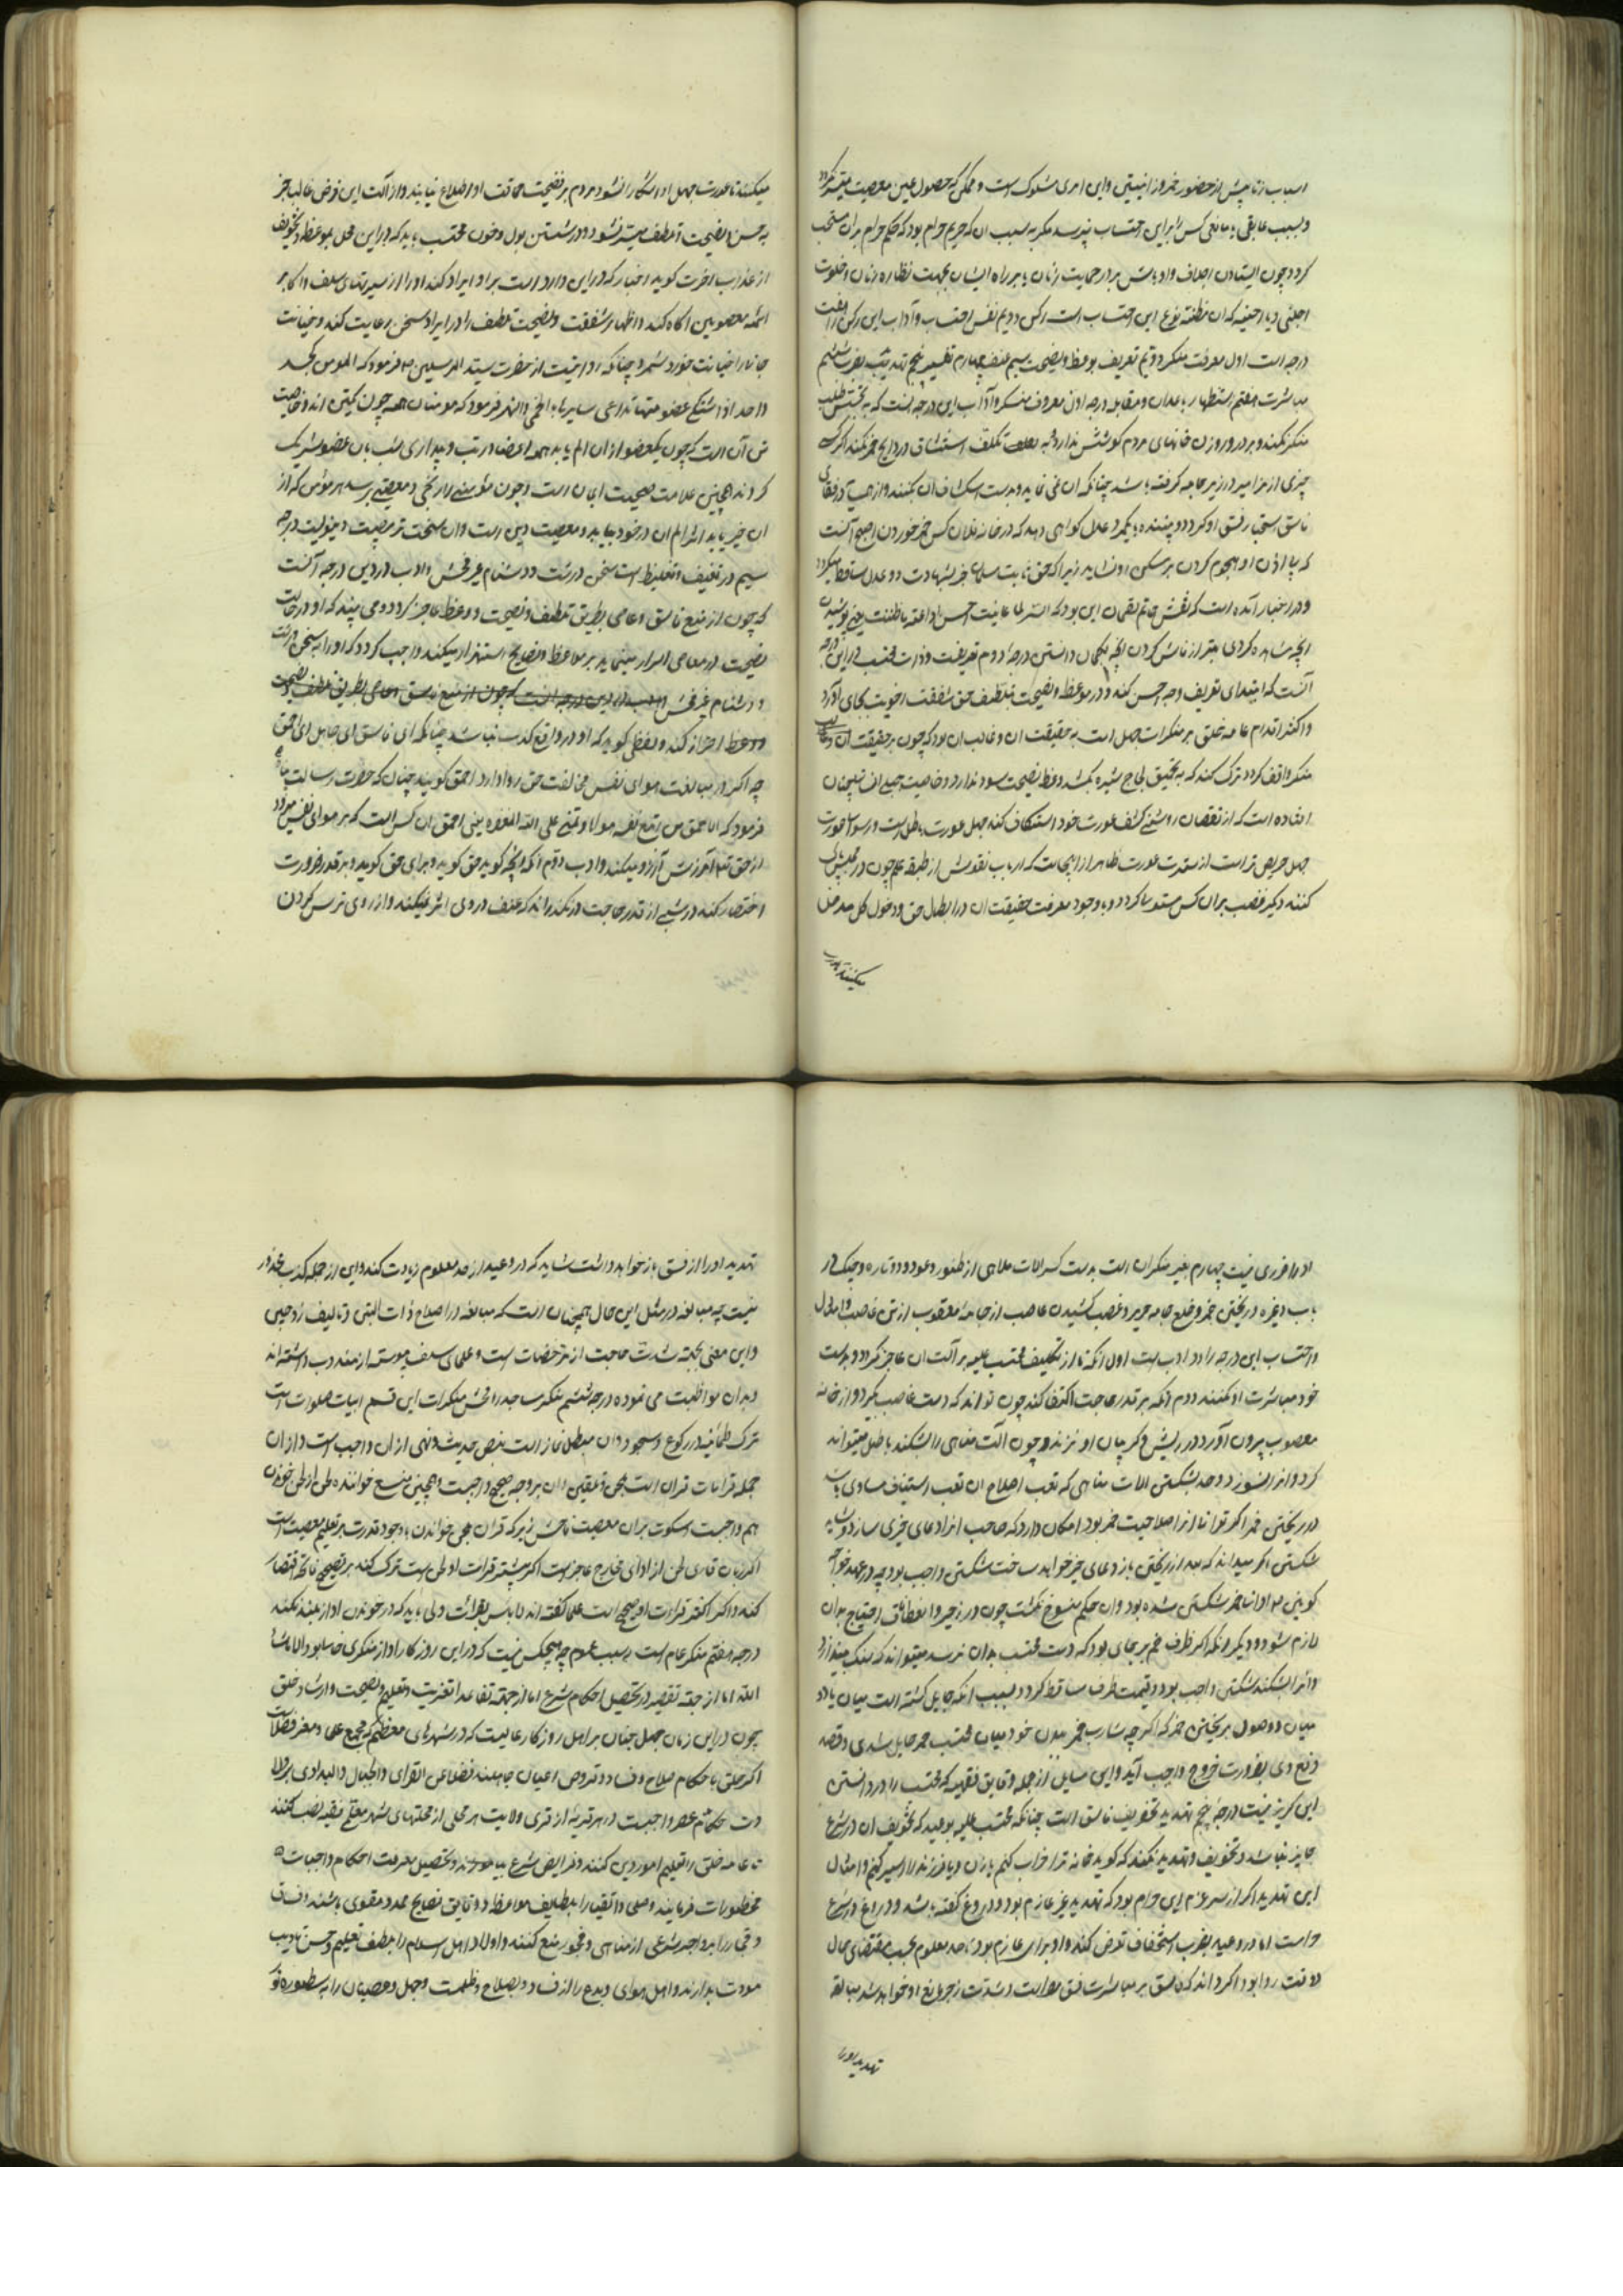 اسباب از تا پیش از حضور خمر و زانیتین و این امری مشکوک است و ممکن که حصول عین معصیت میسر نکردد
و بسبب عایقی یا مانعی کس را برای این احتساب نپرسد مکر به سبب ان که حریم حرام بود که حکم حرام بران منسحب
کردد چون ایستادن اجلاف و اوباش بر در حمایت زنان یا بر راه ایشان بجهت نظاره زنان و خلوت
اجنبی دیا اجنبیه که ان مظنه وقوع این احتساب است رکن دویم نفس احتساب و آداب این رکن را هفت
درجه است اول معرفت منکر دویم تعریف بوعظ و نصیحت سیم عنف چهارم تغییر پنجم تهدید ششم
مباشرت هفتم استظهار باعدان و مقابله درجه اول معروف منکر و آداب این درجه آنست که به تجسس طلب
منکر نکند و بر در و روزن خانهای مردم کوشش ندارد و به تکلف استنشاق در روایح خمر نکند اگر کسی
چیزی از مزامیر در زیر جامه کرفته باشد چنانکه ان می نماید و بدست استکشاف ان نکند و از همسایه
فاسق استحبار فسق او نکردد و بیننده یا یکمرد عدل کواهی دهد که در خانه فلان کس خمر خوردن اصح آنست
که با اذن او هجوم کردن بر مسکن او نشاید زیرا که حق ثابت مسلمان جز بشهادت دو عدل ساقط نکردد
و در اخبار آمده است که نقش خاتم لقمان این بود که الستر لما عاینت احسن من اذاعة ما ظننت یعنی پوشیدن
انچه مشاهده کردی بهتر از فاش کردن انچه بکمان دانستی درجه دوم تعریف است و ذات محتسب در این درجه
آنست که ابتدای تعریف وجه احسن کند و در موعظه و نصیحت تلطیف حق شفقت اخویت بجای آورد
و اکثر اقدام عامه خلق بر منکرات جهل است به حقیقت ان و غالب ان بود که چون بر حقیقت ان
منکر واقف کردد ترک کند که به تحقیق لجاج شیره نکشد و عظ نصیحت سود ندارد و خاصیت جبلی انسان چنان
افتاده است که از نقصان روشنی کشف عورت خود استنکاف کند جهل عورت باطل است و رسوا
جهل حریص تر است از ستر عورت ظاهر از اینجاست که ارباب نفوس از طبقه علم چون در مجلس
کنند دیکر غضب بران کس مستوسا کردد و با وجود معرفت حقیقت ان در ابطال حق و دخول کل مدخل
میکنند تا عورت
میکنند تا عورت جهل او اشکارا نشود و مردم بر فضیحت حماقت او اطلاع نیابند و ازالت این غرض غالبا جز
به حسن نصیحت و تلطف میسر نشود و در شستن بول و خون محتسب باید که در این محل بموعظه و تخویف
از عذاب آخرت کوید اخبار که در این وارد است براو ایراد کند او را از سیرتهای سلف و اکابر
ائمه معصومین آکاه کند و اظهار شفقت و نصیحت و تلطف را در ایراد سخن رعایت کند و خیانت
جانی را خیانت خود شمرد چنانکه روایتست از حضرت سید المرسلین ص فرمود که المؤمن کجسد
واحد اذا اشتکی عضو منها تداعی سایره بالحمی و السهر فرمود که مومنان همه چون یکتن اند و خاصیت
تن آن است که چون یکعضو از ان الم یابد همه اعضا در تب و بیداری شب بان عضو شریک
کردند همچنین علامت صحت ایمان است و چون مؤمنی را رنجی و معصیتی برسد هر مؤمن که از
ان خبر یابد اثر الم ان در خود بیابد و معصیت دین است و ان سخت تر مصیبت و مؤنت درجه
سیم در تعنیف و تغلیظ است سخن درشت و دشنام غیر فحش و ادب در این درجه آنست
که چون از منع فاسق و عاصی بطریق تلطف و نصیحت و وعظ عاجز کردد و می بیند که او در حالت
نصیحت در معاصی اصرار مینماید بر مواعظ و نصایح استهزا میکند واجب کردد که او را به سخن درشت
و دشنام غیر فحش ادب در این درجه انست که چون از منع فاسق و عاصی بطریق تلطف و نصیحت
و وعظ احتراز کند و لفظی کوید که او در واقع کذب نباشد چنانکه ای فاسق ای جاهل ای احمق
چه اکر در مبالغت هوای نفس مخالفت حق روا دارد احمق کویند چنان که حضرت رسالت پناه
فرمود که الاحمق من اتبع نفسه هواها و تمنی علی الله المغفرة یعنی احمق ان کس است که بر هوای نفس رود
از حق تع آمرزش آرزو میکند و ادب دوم انکه انچه کوید حق کوید و برای حق کوید و بر قدر ضرورت
اختصار کند در شبی از قدر حاجت درنکذراند که عنف در وی اثر نمیکند و از روی ترس کردن
او را ضرری نیست چهارم تغییر منکران است بدست کسر الات ملاهی از طنبور و عود و دو تاره و چنک و
رباب و غیره و ریختن خمر و خلع جامه حریر و غصب کشیدن غاصب از جامه مغصوب از تن غاصب و امثال
و احتساب این درجه را دو ادب است اول انکه تا از تکلیف محتسب علیه بر آلت ان عاجز نکردد بدست
خود مباشرت او نکنند دوم انکه بر قدر حاجت اکتفا کند چون تواند که دست غاصب بکیرد و از خانه
مغصوب بیرون آورد در ریش و کریبان او نزند و چون آلت مناهی را بشکند باطل میتواند
کرد و انرا نسوزد و حد شکستن الات مناهی که تعب اصلاح ان تعب استیناف مساوی باشد
در ریختن خمر اکر توانا از اصلاحیت خمر بود امکان دارد که صاحب انرا دعای خیری سازد و شاید
شکستن اکر میداند که بعد از ریختن باز دعای خیر خواهد ساخت شکستن واجب بود چه در عهد خواجه
کونین ص اوانی خمر شکستن شده بود وان حکم منسوخ نکشت چون در زجر و انعطاف احتیاج بدان
لازم شود و دیکر انکه اکر ظرف خمر بر جای بود که دست محتسب بدان نرسد میتواند که سنک بیندازد
و انرا بشکند شکستن واجب بود و قیمت ظرف ساقط کردد بسبب انکه حایل کشته است میان یا دو
میان و وصول بریختن خمر که اکر چه شارب خمر بدن خود میان محتسب خمر حایل شدی و قصد
دفع وی بضرورت خروج واجب آید و این مسایل از جمله دقایق فقهیه که محتسب را در دانستن
این کریز نیست درجه پنجم تهدید تخویف فاسق است چنانکه محتسب علیه بوعید که تخویف ان در شرع
جایز نباشد و تخویف و تهدید نکند که کوید خانه ترا خراب کنم یا زن و یا فرزند را اسیر کنم و امثال
این تهدید اکر از سر عزم این حرام بود که تهدید غیر عازم بود و دروغ کفته باشد و دروغ در شرع
حرامست اما در وعید بضرب استخفاف تعرض کند و او بران عازم بود تا حد معلوم بحسب مقتضای حال
وقت روا بود اکر داند که فاسق بر مباشرت فسق مصر است و شدت زجر مانع او خواهد شد مبالغه
تهدید او را
تهدید او را از فسق باز خواهد داشت شاید که در وعید از حد معلوم زیادت کند و این از جمله کذب محذور
نیست چه مبالغه در مثل این حال همچنان است که مبالغه در اصلاح ذات البین و تالیف زوجین
و این معنی بجهة شدت حاجت از مرخصات است و علمای سلف پیوسته از مندوب داشته اند
و بدان مواظبت می نموده درجه ششم منکر مساجد را فحش منکرات این قسم ابیات صلوات است
ترک طمانینه در رکوع و سجود و ان مبطل نماز است بنص حدیث و نهی از ان واجب است و از ان
جمله قرائات قران است بلحن و تلقین ان بر وجه صحیح واجبست و همچنین منع خواننده لحن از لحن خواندن
هم واجبست و سکوت بران معصیت فاحش زیر که قران بلحن خواندن با وجود قدرت بر تعلیم معصیت است
اکر زبان قاری لحن از ادای مخارج عاجز است اکر بیشتر قرائت او لحن است ترک کند بر تصحیح فاتحه اقتصار
کند و اکر اکثر قرائت او صحیح است علما کفته اند لا باس بقرائت ولی باید که در خواندن اواز بلند نکند
درجه هفتم منکر عام است بسبب عموم چه هیچکس نیست که در این روزکار او از منکری خالی بود الا ماشا
الله اما از جهة تقصیر در تحصیل احکام شرع اما از جهة تقاعد از تعزیت و تعلیم و نصیحت و ارشاد خلق
چون در این زمان جهل چنان بر اهل روزکار غالبست که در شهرهای معظم که مجمع علما و مقر فضلاست
اکثر خلق باحکام صلاح و فساد و فروض اعیان جاهلند فضلا عن القرای و الجبال و البوادی بر ولا
دت حکام عصر واجبست در هر قریه از قری ولایت هر محلی از محلتهای شهر معلمی فقیه نصب کنند
تا عامه خلق را تعلیم امور دین کنند و فرایض شرع بیاموزند و تحصیل معرفت احکام واجبات
محظورات فرمایند و صلحا و اتقیا را بلطایف مواعظ و دقایق نصایح ممد و مقوی باشند و فساق
و فجار را بزواجر شرعی از مناهی و فجور منع کنند و اولاد اهل اسلام را بلطف تعلیم و حسن تادیب
مودت بدارند و اهل هوای و بدع را از فساد و بصلاح و ظلمت و جهل و عصیان را به سطوره نو